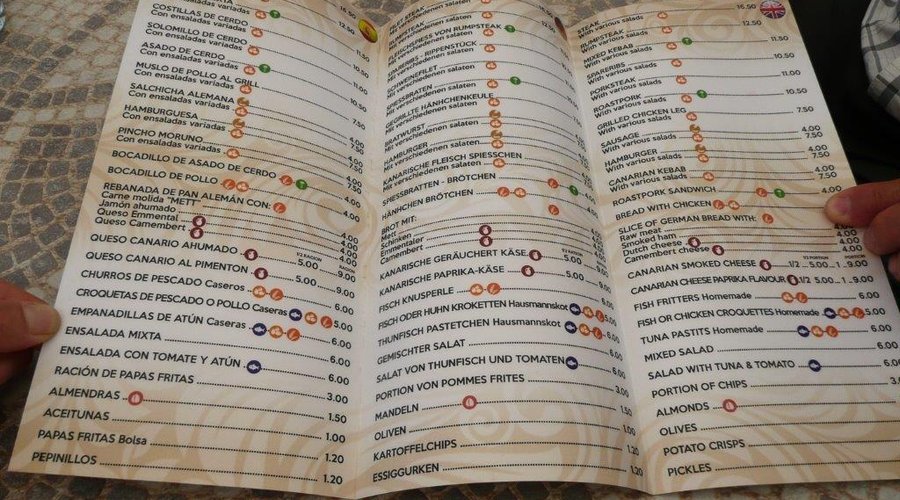 16.50
COSTILLAS DE CERDO
Con ensaladas variadas 12.50
SOLOMILLO DE CERDO
Con ensaladas variadas 11.50
ASADO DE CERDO
Con ensaladas variadas 10.50
MUSLO DE POLLO AL GRILL
Con ensaladas variadas 11.00
SALCHICHA ALEMANA 10.50
Con ensaladas variadas
HAMBURGUESA 4.00
Con ensaladas variadas 7.50
PINCHO MORUNO 4.00
Con ensaladas variadas 7.50
BOCADILLO DE ASADO DE CERDO 4.00
BOCADILLO DE POLLO 7.50
REBANADA DE PAN ALEMÁN CON: 4.00
Carne molida "METT" 4.00
Jamón ahumado 4.00
Queso Emmental 4.00
Queso Camembert 4.00
QUESO CANARIO AHUMADO 5.00 9.00
QUESO CANARIO AL PIMENTON 5.00 9.00
CHURROS DE PESCADO Caseros 6.00
CROQUETAS DE PESCADO O POLLO Caseras 5.00
EMPANADILLAS DE ATÚN Caseras 6.00
ENSALADA MIXTA 6.00
ENSALADA CON TOMATE Y ATÚN 6.00
RACIÓN DE PAPAS FRITAS 3.00
ALMENDRAS 1.50
ACEITUNAS 1.00
PAPAS FRITAS Bolsa 1.20
PEPINILLOS 1.20
Mit verschiedenen salaten
RUMPSTEAK
Mit verschiedenen salaten
FLEISCHSPIESS VON RUMPSTEAK
Mit verschiedenen salaten
SPARERIBS - RIPPENSTÜCK
Mit verschiedenen salaten
SCHWEINEFILET
Mit verschiedenen salaten
SPIESSBRATEN
Mit verschiedenen salaten
GEGRILLTE HÄHNCHENKEULE
Mit verschiedenen salaten
BRATWURST
Mit verschiedenen salaten
HAMBURGER
Mit verschiedenen salaten
KANARISCHE FLEISCH SPIESSCHEN
Mit verschiedenen salaten
SPIESSBRATTEN - BRÖTCHEN
HÄHNCHEN BRÖTCHEN
BROT MIT:
Mett
Schinken
Emmentaler
Camembert
KANARISCHE GERÄUCHERT KÄSE 5.00 9.00
KANARISCHE PAPRIKA-KÄSE 5.00 9.00
FISCH KNUSPERLE 6.00
FISCH ODER HUHN KROKETTEN Hausmannskot 5.00
THUNFISCH PASTETCHEN Hausmannskot 6.00
GEMISCHTER SALAT 6.00
SALAT VON THUNFISCH UND TOMATEN 6.00
PORTION VON POMMES FRITES 3.00
MANDELN 1.50
OLIVEN 1.00
KARTOFFELCHIPS 1.20
ESSIGGURKEN 1.20
STEAK 16.50
With various salads 12.50
RUMPSTEAK
With various salads 11.50
MIXED KEBAB
With various salads 10.50
SPARERIBS
With various salads 11.00
PORKSTEAK
With various salads
ROASTPORK 10.50
With various salads
GRILLED CHICKEN LEG
With various salads
SAUSAGE 4.00
With various salads 7.50
HAMBURGER 4.00
With various salads 7.50
CANARIAN KEBAB
With various salads
ROASTPORK SANDWICH 4.00
BREAD WITH CHICKEN
SLICE OF GERMAN BREAD WITH:
Raw meat 4.00
Smoked ham 4.00
Dutch cheese 4.00
Camembert cheese 4.00
CANARIAN SMOKED CHEESE 1/2 5.00 1 9.00
CANARIAN CHEESE PAPRIKA FLAVOUR 1/2 5.00 1 9.00
FISH FRITTERS Homemade 6.00
FISH OR CHICKEN CROQUETTES Homemade 5.00
TUNA PASTITS Homemade 6.00
MIXED SALAD 6.00
SALAD WITH TUNA & TOMATO 6.00
PORTION OF CHIPS
ALMONDS
OLIVES
POTATO CRISPS
PICKLES